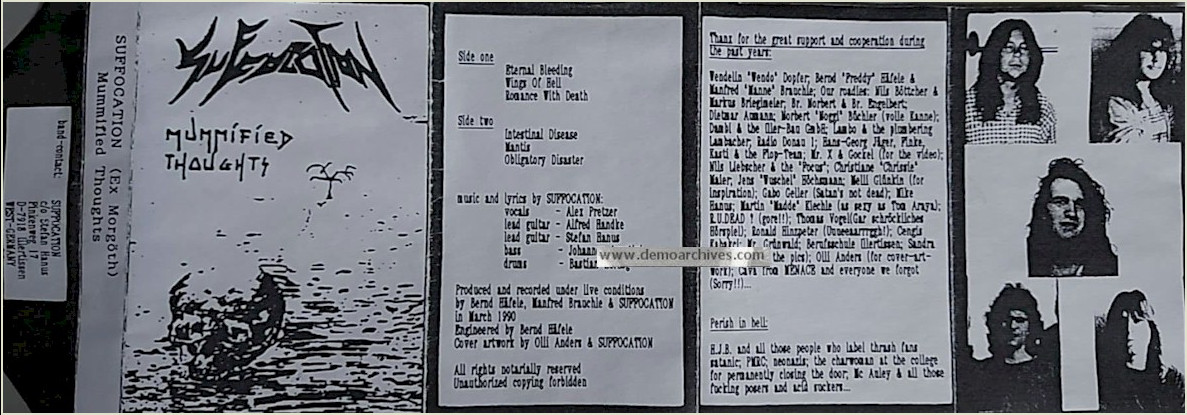 band-contact:
SUFFOCATION
c/o Stefan Hanus
Finkenweg 17
D-7918 Illertissen
WEST-GERMANY
SUFFOCATION (Ex Morgöth)
Mummified Thoughts
SUFFOCATION
MUMMIFIED
THOUGHTS
Side one
Eternal Bleeding
Wings Of Hell
Romance With Death
Side two
Intestinal Disease
Mantis
Obligatory Disaster
music and lyrics by SUFFOCATION:
vocals - Alex Pretzer
lead guitar - Alfred Handke
lead guitar - Stefan Hanus
bass - Johann
drums - Bastian
www.demoarchives.com
Produced and recorded under live conditions
by Bernd Häfele, Manfred Brauchle & SUFFOCATION
in March 1990
Engineered by Bernd Häfele
Cover artwork by Olli Anders & SUFFOCATION
All rights notarially reserved
Unauthorized copying forbidden
Thanx for the great support and cooperation during
the past years:
Wendelin "Wendo" Dopfer; Bernd "Freddy" Häfele &
Manfred "Manne" Brauchle; Our roadies: Nils Böttcher &
Markus Briegimeler; Br. Norbert & Br. Engelbert;
Dietmar Aumann; Norbert "Moggi" Büchler (volle Kanne);
Dambl & the Öler-Bau GmbH; Lambo & the plumbering
Lambacher; Radio Donau 1; Hans-Georg Jäger, Finke,
Kasti & the Plop-Team; Mr. X & Gockel (for the video);
Nils Liebscher & the "Focus"; Christiane "Chrissie"
Maier; Jens "Wuschel" Höchsmann; Melli Glünkin (for
inspiration); Gabo Geiler (Satan's not dead); Mike
Hanus; Martin "Madde" Kiechle (as sexy as Tom Araya);
R.U.DEAD ? (gore!!); Thomas Vogel(Gar schröckliches
Hörspiel); Ronald Hinzpeter (Uuneeaarrrggh!); Cengis
Grünwald; Berufsschule Illertissen; Sandra
the pics); Olli Anders (for cover-art-
work); Cava from MENACE and everyone we forgot
(Sorry!!)...
Perish in hell:
H.J.B. and all those people who label thrash fans
satanic; PMRC; neonazis; the charwoman at the college
for permanently closing the door; Mc Auley & all those
fucking posers and acid suckers...